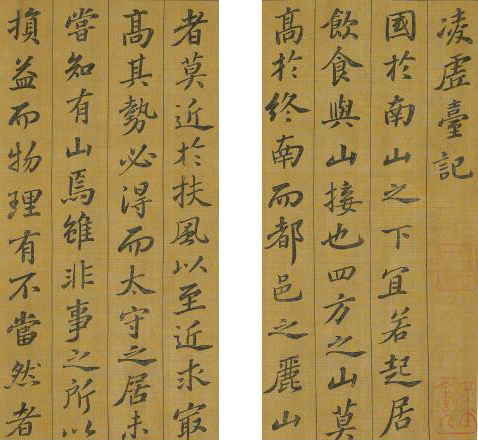 凌虛臺記
國於南山之下宜若起居
飲食與山接也四方之山莫
高於終南而都邑之麗山
者莫近於扶風以至近求最
高其勢必得而太守之居未
嘗知有山焉雖非事之所以
損益而物理有不當然者